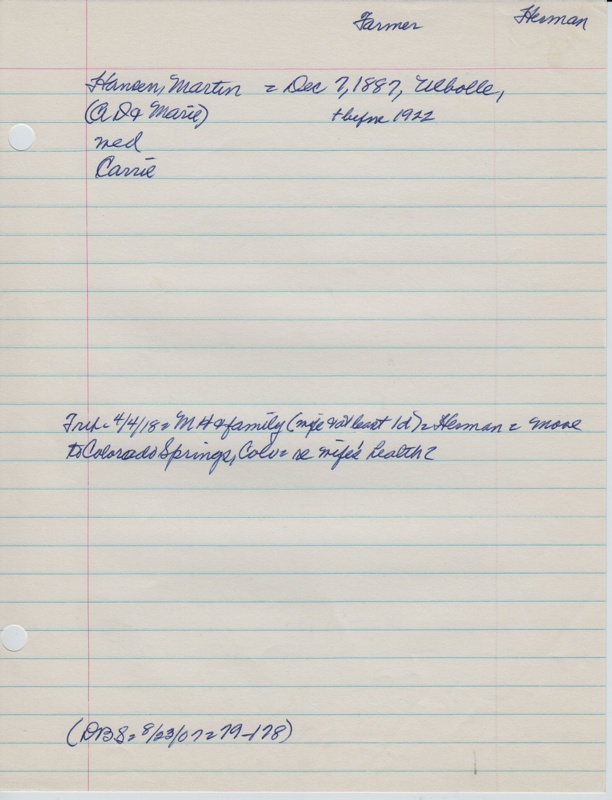 Farmer Herman
Hansen, Martin = Dec 7, 1887, Ulbolle,
(A D & Marie) + before 1922
med
Carrie
Trib = 4/4/18 = M H & family (wife & at least 1 d) = Herman = move
to Colorado Springs, Colo = re wife's health?
(DBS = 8/23/07 = 79-178)